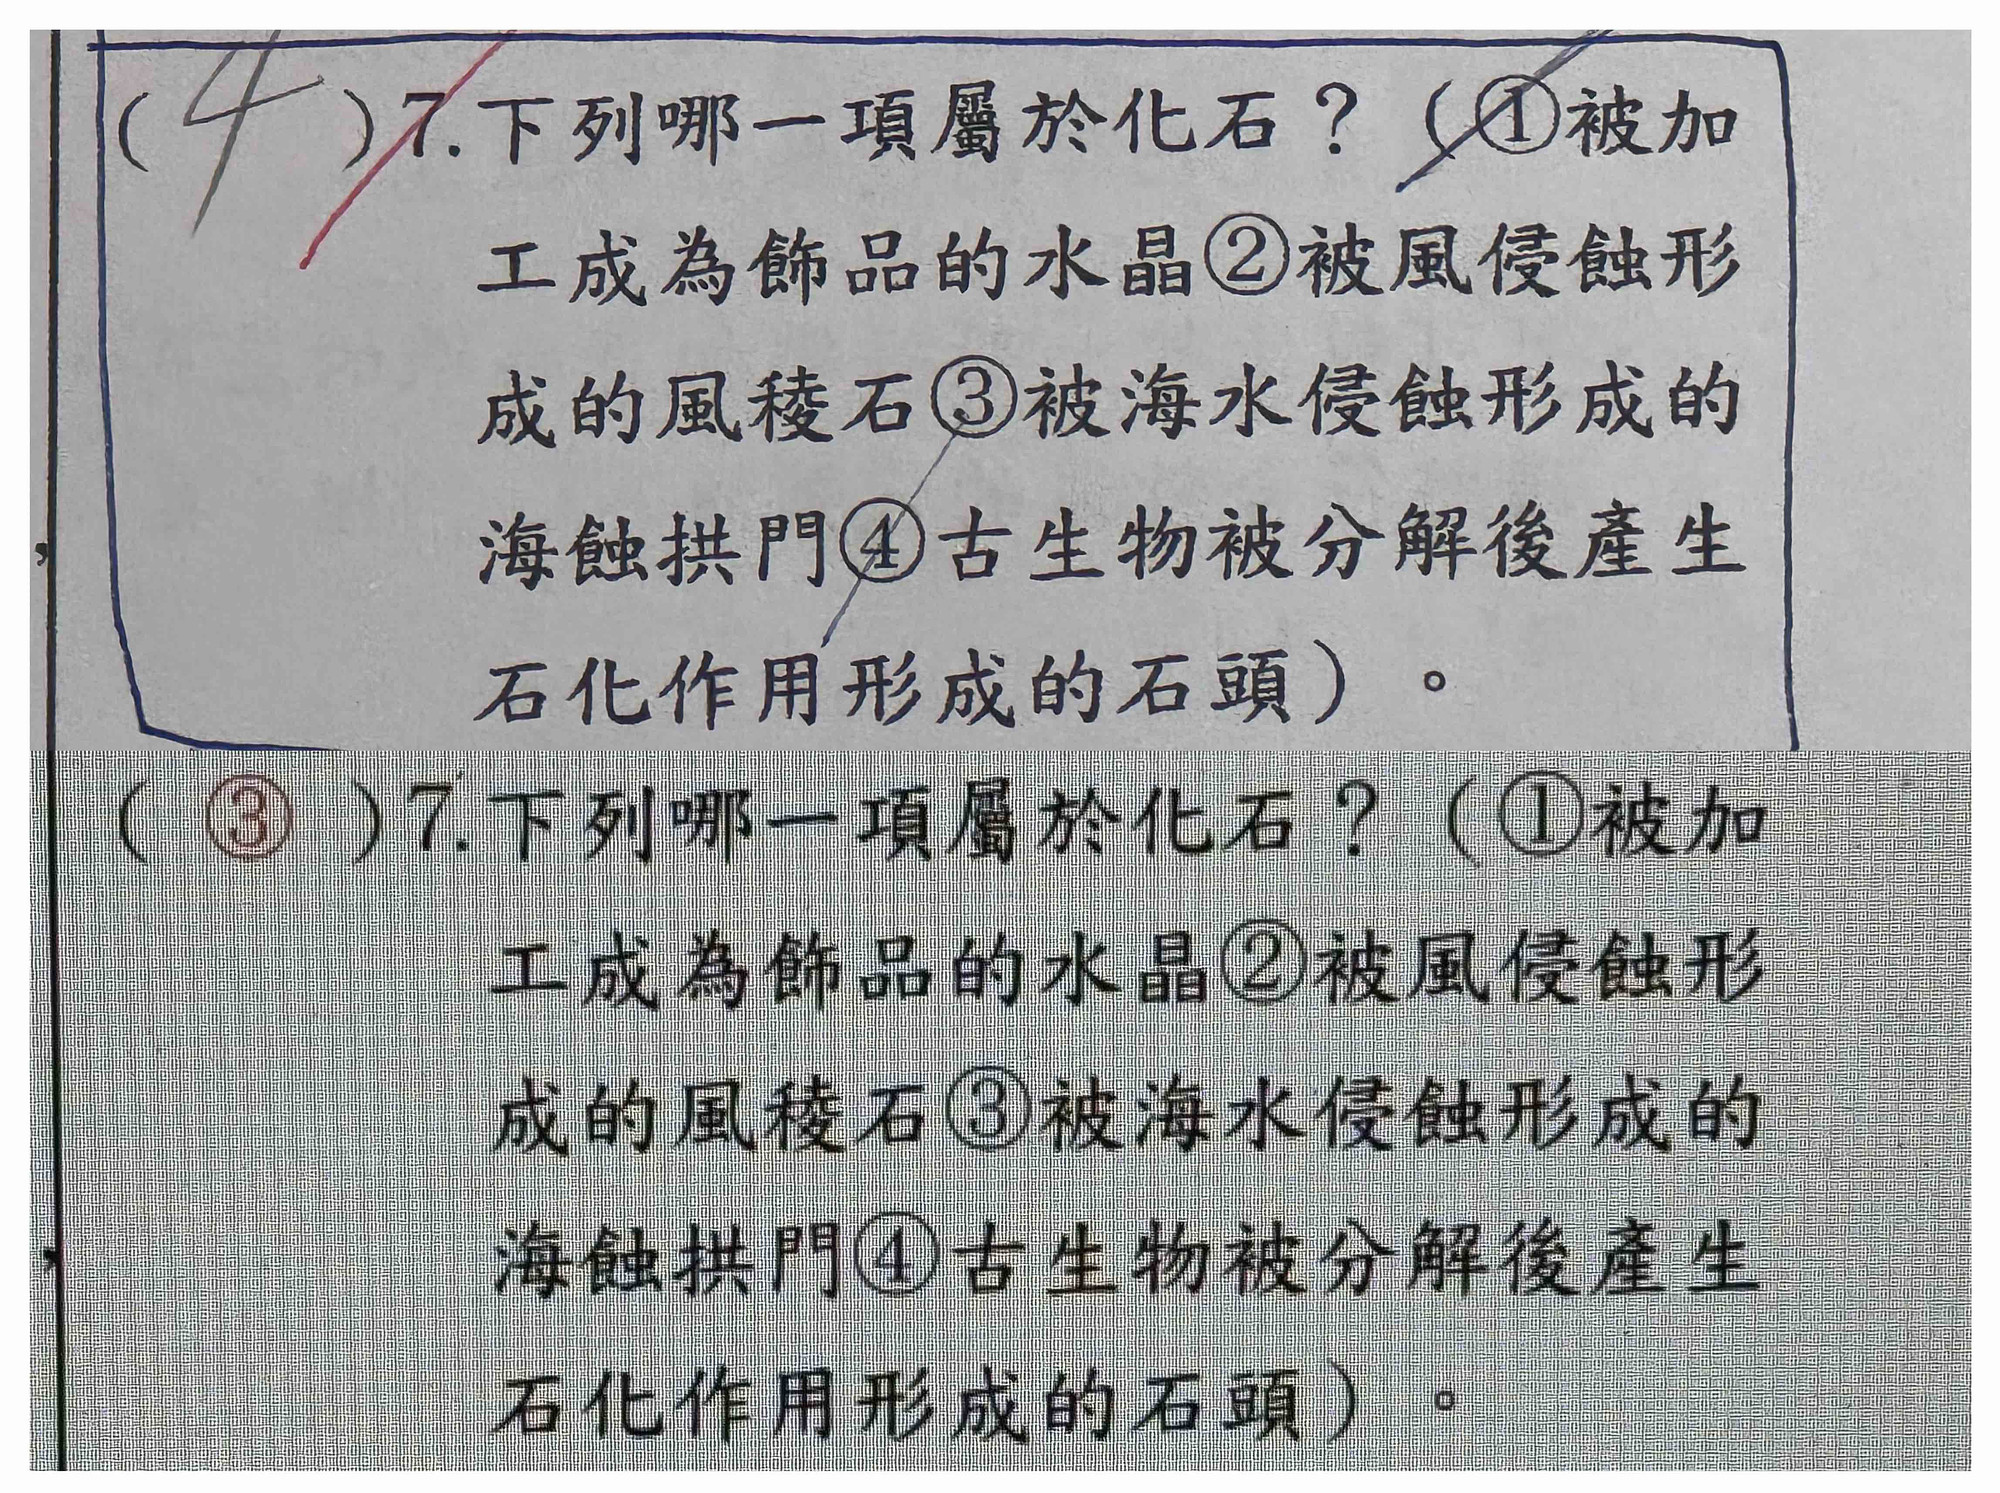 ( 4 )7.下列哪一項屬於化石？（①被加
工成為飾品的水晶②被風侵蝕形
成的風稜石③被海水侵蝕形成的
海蝕拱門④古生物被分解後產生
石化作用形成的石頭）。
( ③ )7.下列哪一項屬於化石？（①被加
工成為飾品的水晶②被風侵蝕形
成的風稜石③被海水侵蝕形成的
海蝕拱門④古生物被分解後產生
石化作用形成的石頭）。